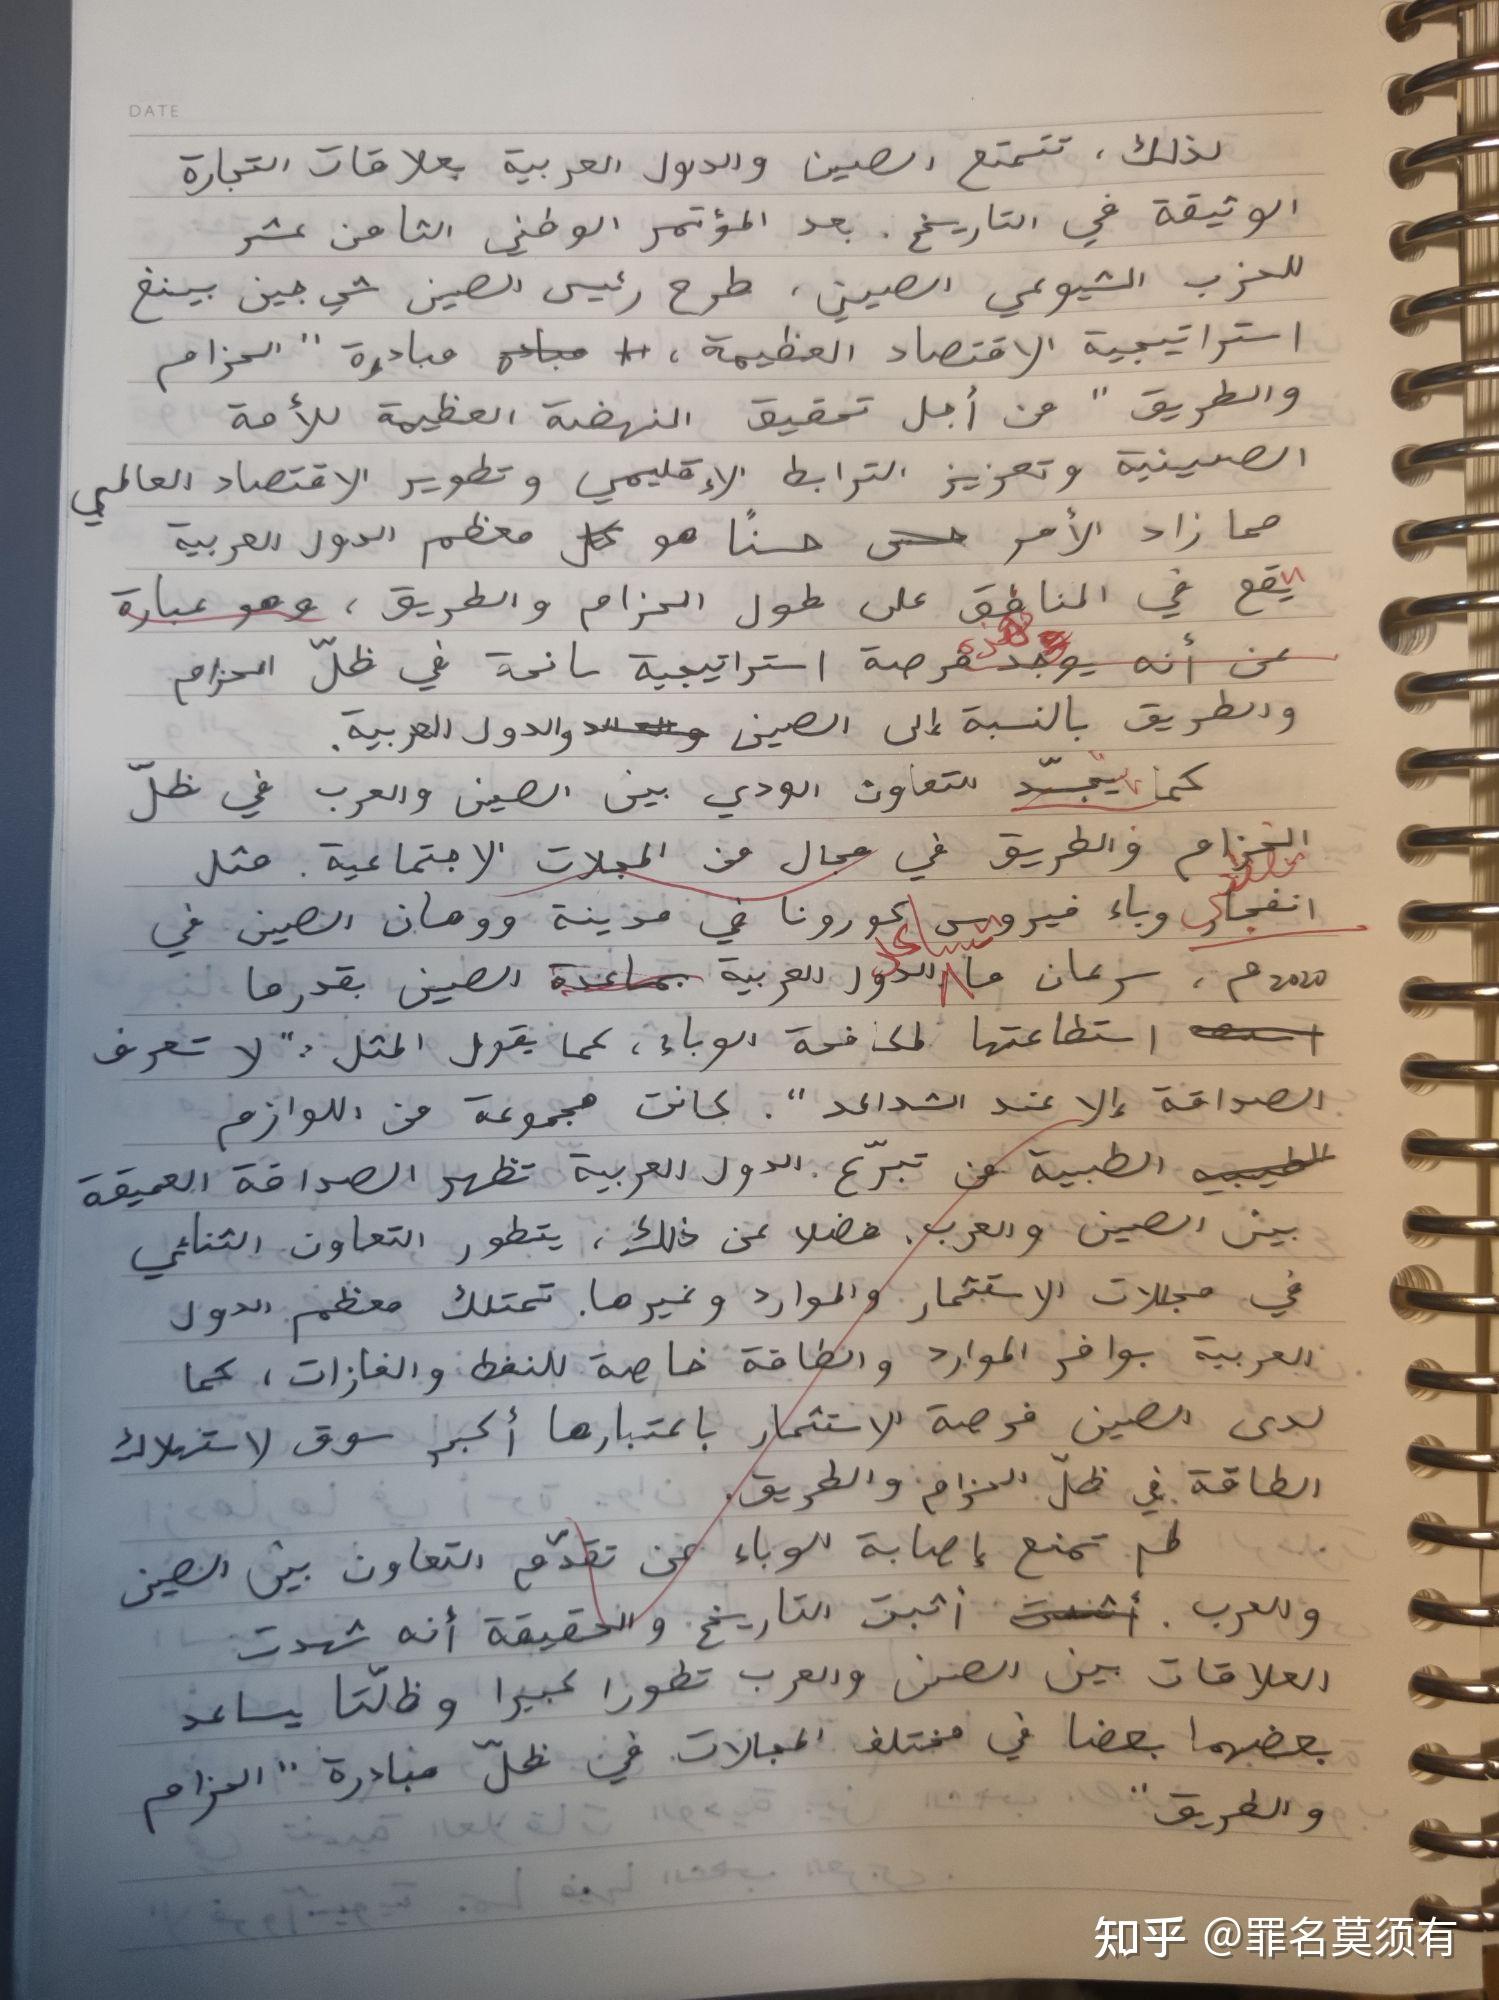 DATE
لذلك، تتمتع الصين والدول العربية بعلاقات التجارة
الوثيقة في التاريخ. بعد المؤتمر الوطني الثامن عشر
للحزب الشيوعي الصيني، طرح رئيس الصين شي جين بينغ
استراتيجية الاقتصاد العظيمة، مبادرة "الحزام
والطريق" من أجل تحقيق النهضة العظيمة للأمة
الصينية وتعزيز الترابط الإقليمي وتطوير الاقتصاد العالمي
مما زاد الأمر حسنًا هو معظم الدول العربية
يقع في المناطق على طول الحزام والطريق، وهو عبارة
عن أنه يوجد فرصة استراتيجية سانحة في ظلّ الحزام
والطريق بالنسبة إلى الصين والدول العربية.
كما يجسّد التعاون الودي بين الصين والعرب في ظلّ
الحزام والطريق في مجال من المجلات الاجتماعية. مثل
انفجار وباء فيروس كورونا في مدينة ووهان الصين في
2020م، سرعان ما تساعد الدول العربية بمساعدة الصين بقدر ما
استطاعتها لمكافحة الوباء، كما يقول المثل: "لا تعرف
الصداقة إلا عند الشدائد". كانت مجموعة من اللوازم
الطبية من تبرّع الدول العربية تظهر الصداقة العميقة
بين الصين والعرب. فضلا عن ذلك، يتطور التعاون الثنائي
في مجلات الاستثمار والموارد وغيرها. تمتلك معظم الدول
العربية بوافر الموارد والطاقة خاصة للنفط والغازات، كما
لدى الصين فرصة الاستثمار باعتبارها أكبر سوق لاستهلاك
الطاقة في ظلّ الحزام والطريق.
لم تمنع إصابة الوباء عن تقدّم التعاون بين الصين
والعرب. أثبت التاريخ والحقيقة أنه شهدت
العلاقات بين الصين والعرب تطورا كبيرا وظلّتا يساعد
بعضهما بعضا في مختلف المجالات في ظلّ مبادرة "الحزام
والطريق"
知乎 @罪名莫须有